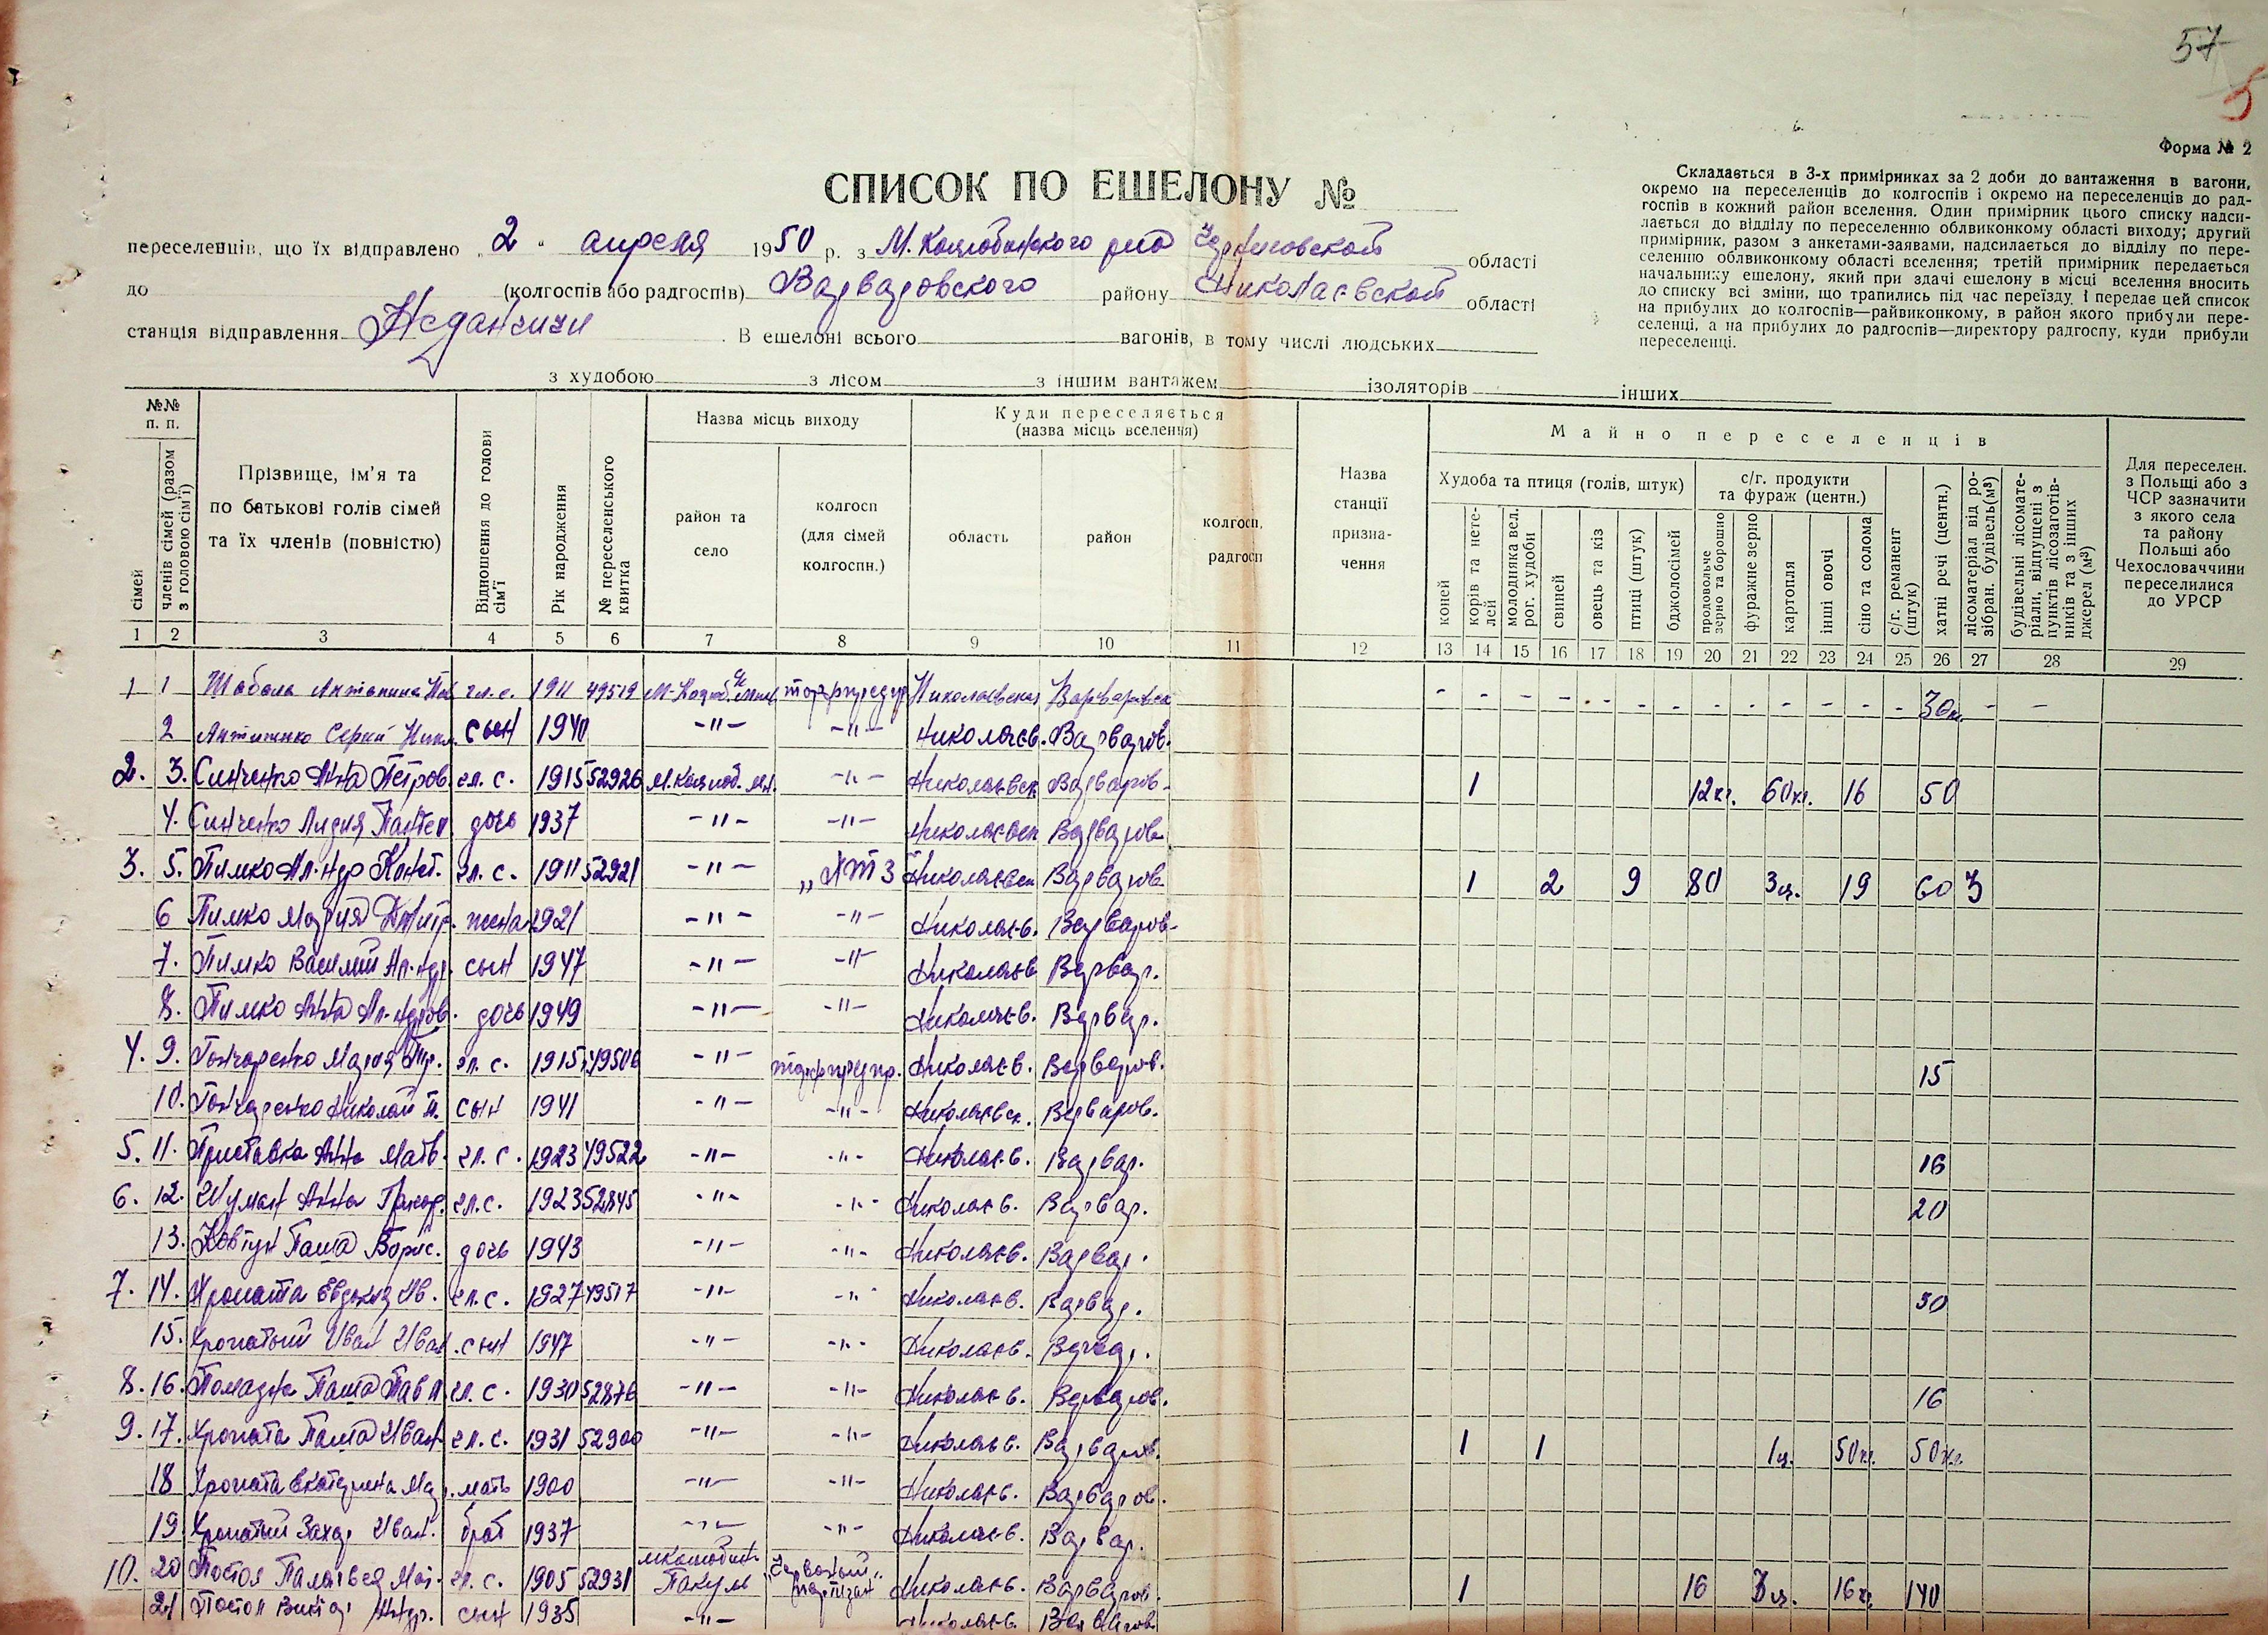 57
5
Форма № 2
СПИСОК ПО ЕШЕЛОНУ №
Складається в 3-х примірниках за 2 доби до вантаження в вагони,
окремо на переселенців до колгоспів і окремо на переселенців до рад-
госпів в кожний район вселення. Один примірник цього списку надси-
лається до відділу по переселенню облвиконкому області виходу; другий
примірник, разом з анкетами-заявами, надсилається до відділу по пере-
селенню облвиконкому області вселення; третій примірник передається
начальнику ешелону, який при здачі ешелону в місці вселення вносить
до списку всі зміни, що трапились під час переїзду, і передає цей список
на прибулих до колгоспів—райвиконкому, в район якого прибули пере-
селенці, а на прибулих до радгоспів—директору радгоспу, куди прибули
переселенці.
переселенців, що їх відправлено „2" апреля 1950 р. з М. Коцюбинского р-на Черниговской області
до (колгоспів або радгоспів) Варваровского району Николаевской області
станція відправлення Неданчичи. В ешелоні всього вагонів, в тому числі людських
з худобою з лісом з іншим вантажем ізоляторів інших
№№ п. п.
сімей
членів сімей (разом з головою сім'ї)
Прізвище, ім'я та по батькові голів сімей та їх членів (повністю)
Відношення до голови сім'ї
Рік народження
№ переселенського квитка
Назва місць виходу
район та село
колгосп (для сімей колгоспн.)
Куди переселяється (назва місць вселення)
область
район
колгосп, радгосп
Назва станції призначення
Майно переселенців
Худоба та птиця (голів, штук)
коней
корів та нетелей
молодняка вел. рог. худоби
свиней
овець та кіз
птиці (штук)
бджолосімей
с/г. продукти та фураж (центн.)
продовольче зерно та борошно
фуражне зерно
картопля
інші овочі
сіно та солома
с/г. реманент (штук)
хатні речі (центн.)
лісоматеріал від розібран. будівель (м³)
будівельні лісоматеріали, відпущені з пунктів лісозаготівників та з інших джерел (м³)
Для переселен. з Польщі або з ЧСР зазначити з якого села та району Польщі або Чехословаччини переселилися до УРСР
1 2 3 4 5 6 7 8 9 10 11 12 13 14 15 16 17 18 19 20 21 22 23 24 25 26 27 28 29
1 1 Антонина гл. с. 1911 49519 торфпредпр Николаевская Варваровск - - - - - - - - - - - - - 30к. - -
2 Сергей сын 1940 -"- -"- Николаев. Варваров.
2. 3. Синченко Анна Петров. гл. с. 1915 52926 М. Коцюб. -"- Николаевск Варваров. 1 12кг. 60кг. 16 50
4. Синченко Лидия дочь 1937 -"- -"- Николаевск Варваров.
3. 5. Пимко Ал-ндр Конст. гл. с. 1911 52921 -"- „ХТЗ" Николаевск Варваров. 1 2 9 80 3ц. 19 60 3
6 Пимко Мария Дмитр. жена 1921 -"- -"- Николаев. Варваров.
7. Пимко Василий Ал-ндр. сын 1947 -"- -"- Николаев. Варвар.
8. Пимко Анна Ал-ндров. дочь 1949 -"- -"- Николаев. Варвар.
4. 9. Гончаренко Мария гл. с. 1915 49506 -"- торфпредпр. Николаев. Варваров. 15
10. Гончаренко Николай сын 1941 -"- -"- Николаевск. Варваров.
5. 11. Приставка Анна Матв. гл. с. 1923 49522 -"- -"- Николаев. Варвар. 16
6. 12. Шуман Анна Григор. гл. с. 1923 52845 -"- -"- Николаев. Варвар. 20
13. Ковтун Паша Борис. дочь 1943 -"- -"- Николаев. Варвар.
7. 14. Хропата Евдокия Ив. гл. с. 1927 49517 -"- -"- Николаев. Варвар. 30
15. Хропатый Иван Иван. сын 1947 -"- -"- Николаев. Варвар.
8. 16. Паша Павл. гл. с. 1930 52876 -"- -"- Николаев. Варваров. 16
9. 17. Хропата Паша Иван. гл. с. 1931 52900 -"- -"- Николаев. Варваров. 1 1 1ц. 50кг. 50кг.
18 Хропата Екатерина мать 1900 -"- -"- Николаев. Варваров.
19. Хропатый Захар Иван. брат 1937 -"- -"- Николаев. Варвар.
10. 20 Постол гл. с. 1905 52931 Пакуль „Червоный партизан" Николаев. Варваров. 1 16 3ц. 16кг. 140
21 Постол Виктор сын 1935 -"- Николаев. Варваров.